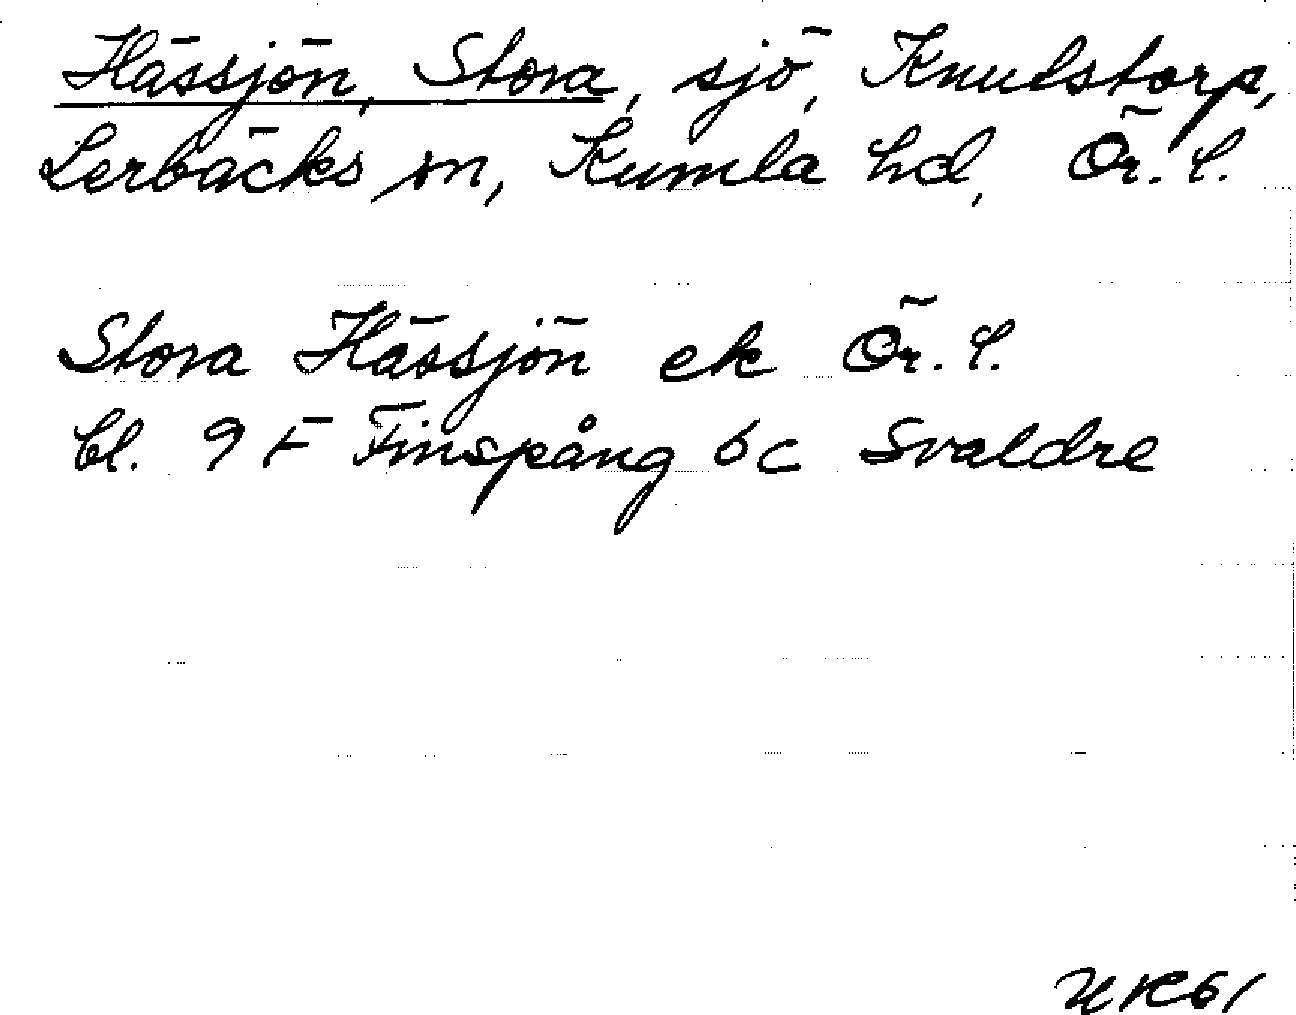 Hässjön, Stora, sjö, Knutstorp,
Lerbäcks sn, Kumla hd, Ör. l.
Stora Hässjön ek Ör. l.
bl. 9 F Finspång 6c Svaldre